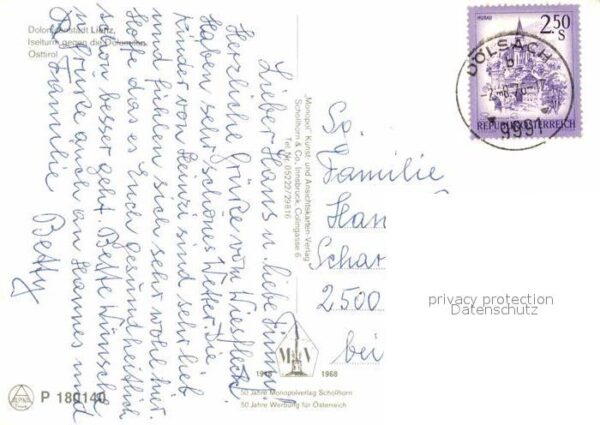 Dolomitenstadt Lienz,
Iselturm gegen die Dolomiten
Osttirol
Lieber Hans u. liebe
Herzliche Grüße vom
Haben sehr schönes Wetter. Die
Kinder von Heinzi sind sehr lieb
und fühlen sich sehr wohl hier.
Hoffe das es Euch gesundheitlich
schon besser geht. Bette Wünsche
u. Grüße auch an Hannes und
Familie Betty
"Monopol" Kunst- und Ansichtskarten-Verlag
Schöllhorn & Co., Innsbruck, Colingasse 6
Tel. Nr. 05222/29816
MURAU
2.50
S
REPUBLIK ÖSTERREICH
DÖLSACH
b
9991
Familie
Han
Schar
2500
bei
privacy protection
Datenschutz
M V
1918 1968
50 Jahre Monopolverlag Schöllhorn
50 Jahre Werbung für Österreich
ALPINA
P 180140